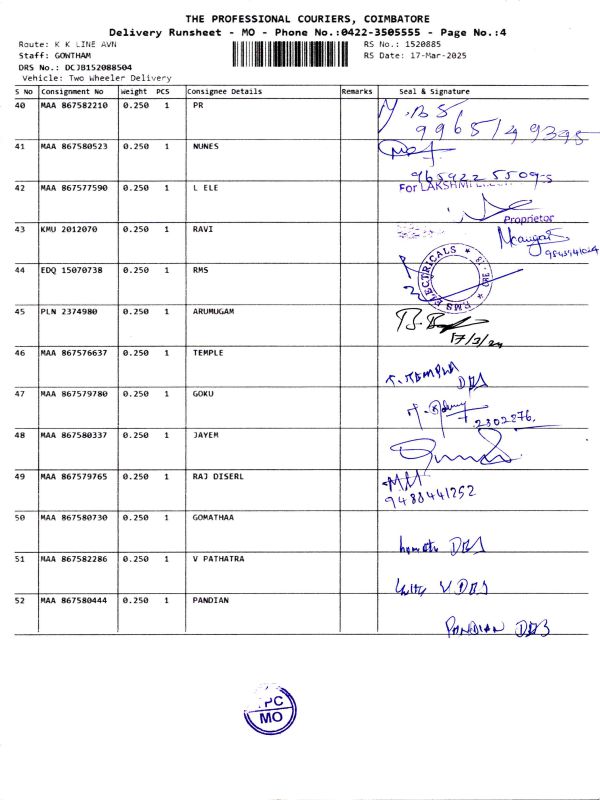 THE PROFESSIONAL COURIERS, COIMBATORE
Delivery Runsheet - MO - Phone No.:0422-3505555 - Page No.:4
Route: K K LINE AVN
RS No.: 1520885
Staff: GOWTHAM
RS Date: 17-Mar-2025
DRS No.: DCJB152088504
Vehicle: Two Wheeler Delivery
S No Consignment No Weight PCS Consignee Details Remarks Seal & Signature
40 MAA 867582210 0.250 1 PR
9965149395
41 MAA 867580523 0.250 1 NUNES
9659225509
42 MAA 867577590 0.250 1 L ELE
For LAKSHMI
Proprietor
43 KMU 2012070 0.250 1 RAVI
44 EDQ 15070738 0.250 1 RMS
RMS ELECTRICALS
45 PLN 2374980 0.250 1 ARUMUGAM
17/3/24
46 MAA 867576637 0.250 1 TEMPLE
47 MAA 867579780 0.250 1 GOKU
2302876.
48 MAA 867580337 0.250 1 JAYEM
49 MAA 867579765 0.250 1 RAJ DISERL
9488441252
50 MAA 867580730 0.250 1 GOMATHAA
51 MAA 867582286 0.250 1 V PATHATRA
52 MAA 867580444 0.250 1 PANDIAN
PANDIAN
PC
MO